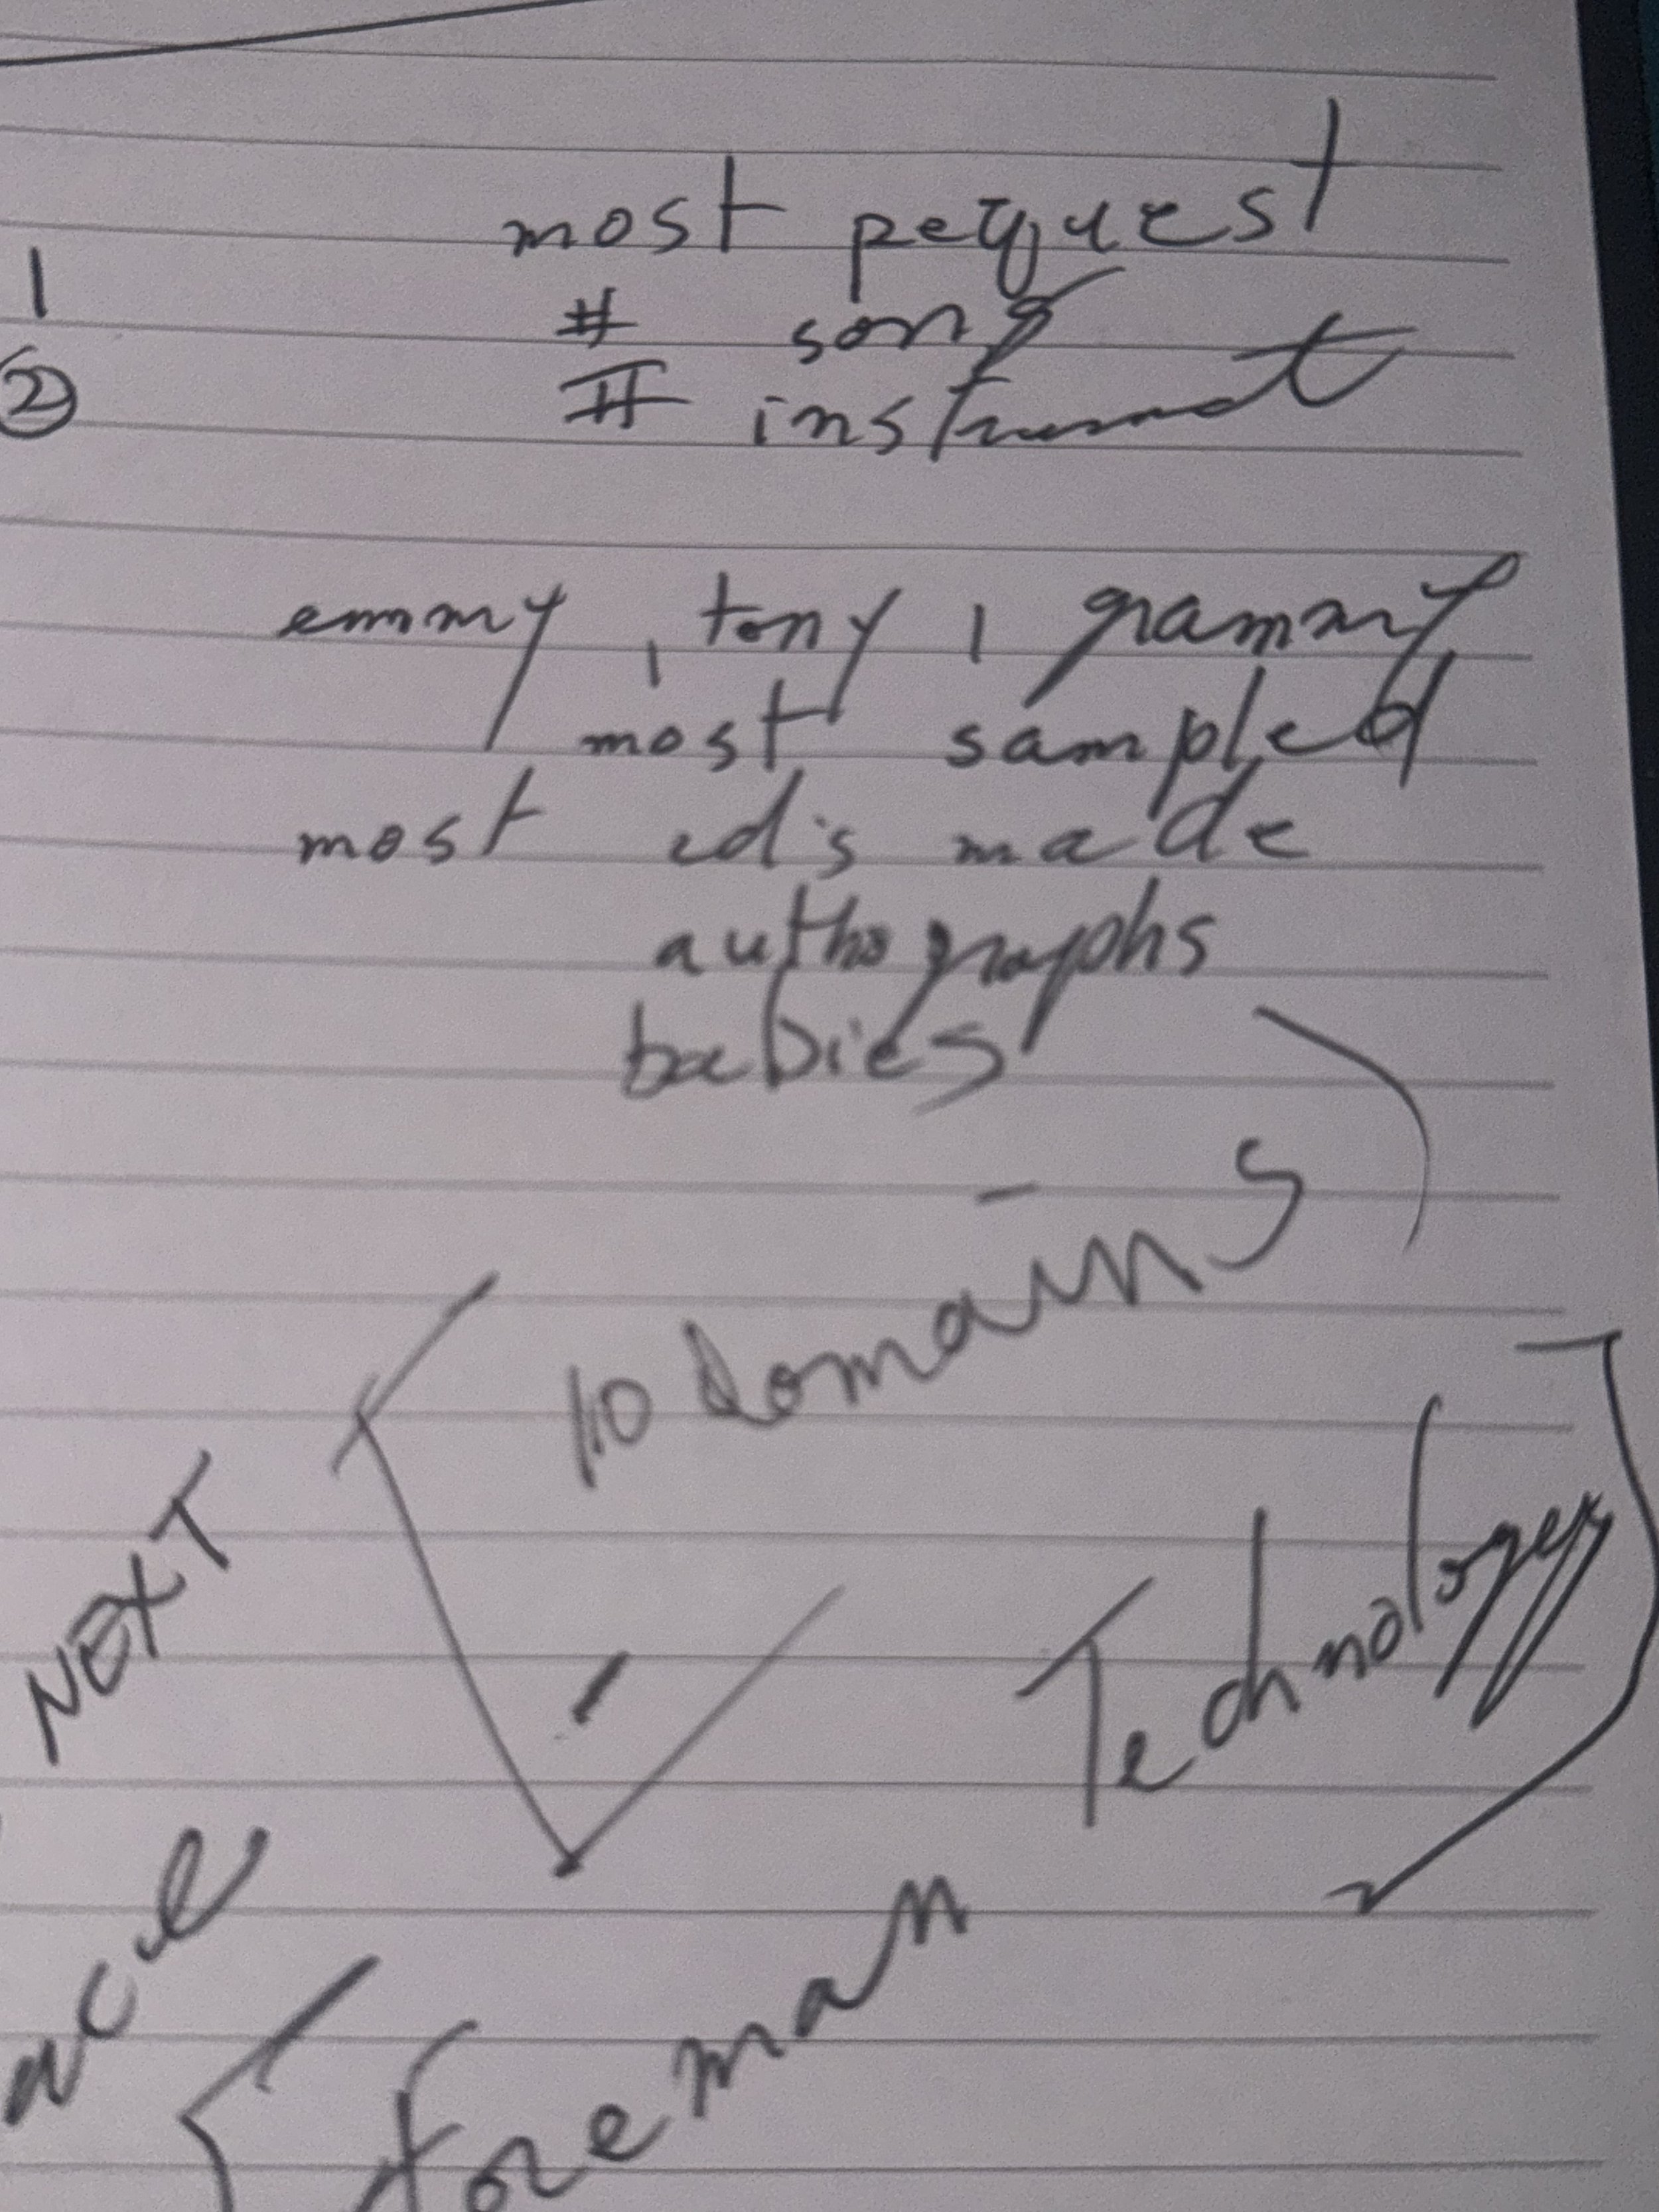 most request
1 # song
② # instrument
emmy, tony, grammy
most sampled
most cd's made
authographs
babies
10 domains
NEXT
Technology
foreman